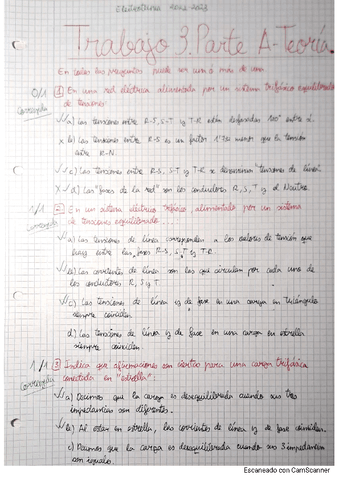 Electrotecnia 2022-2023
Trabajo 3. Parte A-Teoría.
En todas las preguntas puede ser una ó más de una
0/1 1 En una red eléctrica alimentada por un sistema trifásico equilibrado
corregida de tensiones:
✓ a) Las tensiones entre R-S, S-T y T-R están desfasadas 120° entre sí.
x b) Las tensiones entre R-S es un factor 1'73 menor que la tensión
entre R-N.
✓ c) Las tensiones entre R-S, S-T y T-R se denominan "tensiones de línea".
X ✓ d) Las "fases de la red" son los conductores R, S, T y el Neutro.
1/1 2 En un sistema eléctrico trifásico, alimentado por un sistema
corregida de tensiones equilibrado...
✓ a) Las tensiones de línea corresponden a los valores de tensión que
hay entre las fases R-S, S-T y T-R.
✓ b) Las corrientes de línea son las que circulan por cada uno de
los conductores R, S y T
✓ c) Las tensiones de línea y de fase en una carga en triángulo
siempre coinciden.
d) Las tensiones de línea y de fase en una carga en estrella
siempre coinciden.
1/1 3 Indica que afirmaciones son ciertas para una carga trifásica
corregida conectada en "estrella":
✓ a) Decimos que la carga es desequilibrada cuando sus tres
impedancias son diferentes.
✓ b) Al estar en estrella, las corrientes de línea y de fase coinciden.
c) Decimos que la carga es desequilibrada cuando sus 3 impedancias
son iguales.
Escaneado con CamScanner